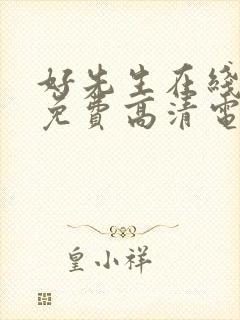 好先生在线
免费高清电
皇小祥